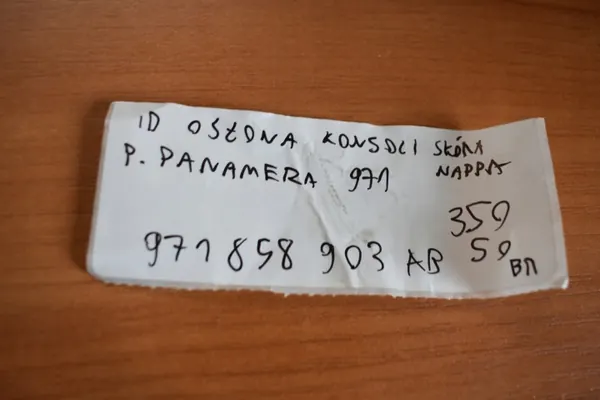 ID OSŁONA KONSOLI SKÓRA
P. PANAMERA 971 NAPPA
359
971 858 903 AB 59
ВП